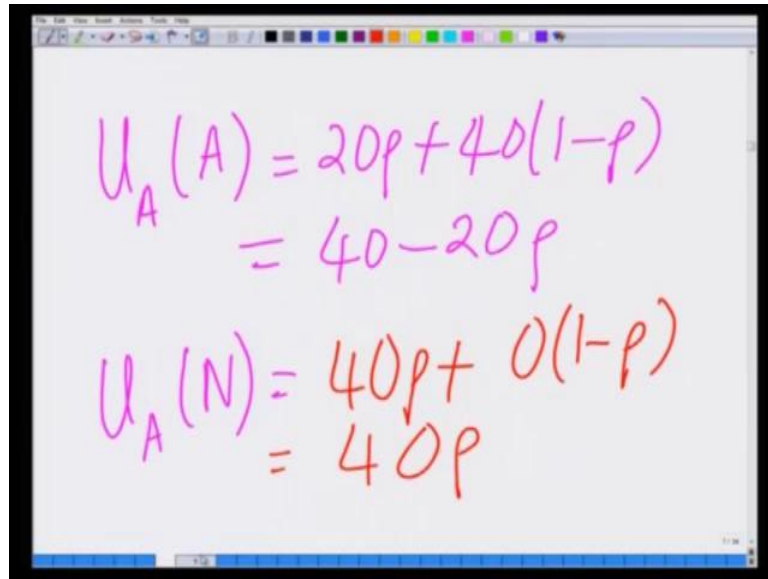 File Edit View Insert Actions Tools Help
U_A(A) = 20p + 40(1-p)
= 40-20p
U_A(N) = 40p + 0(1-p)
= 40p